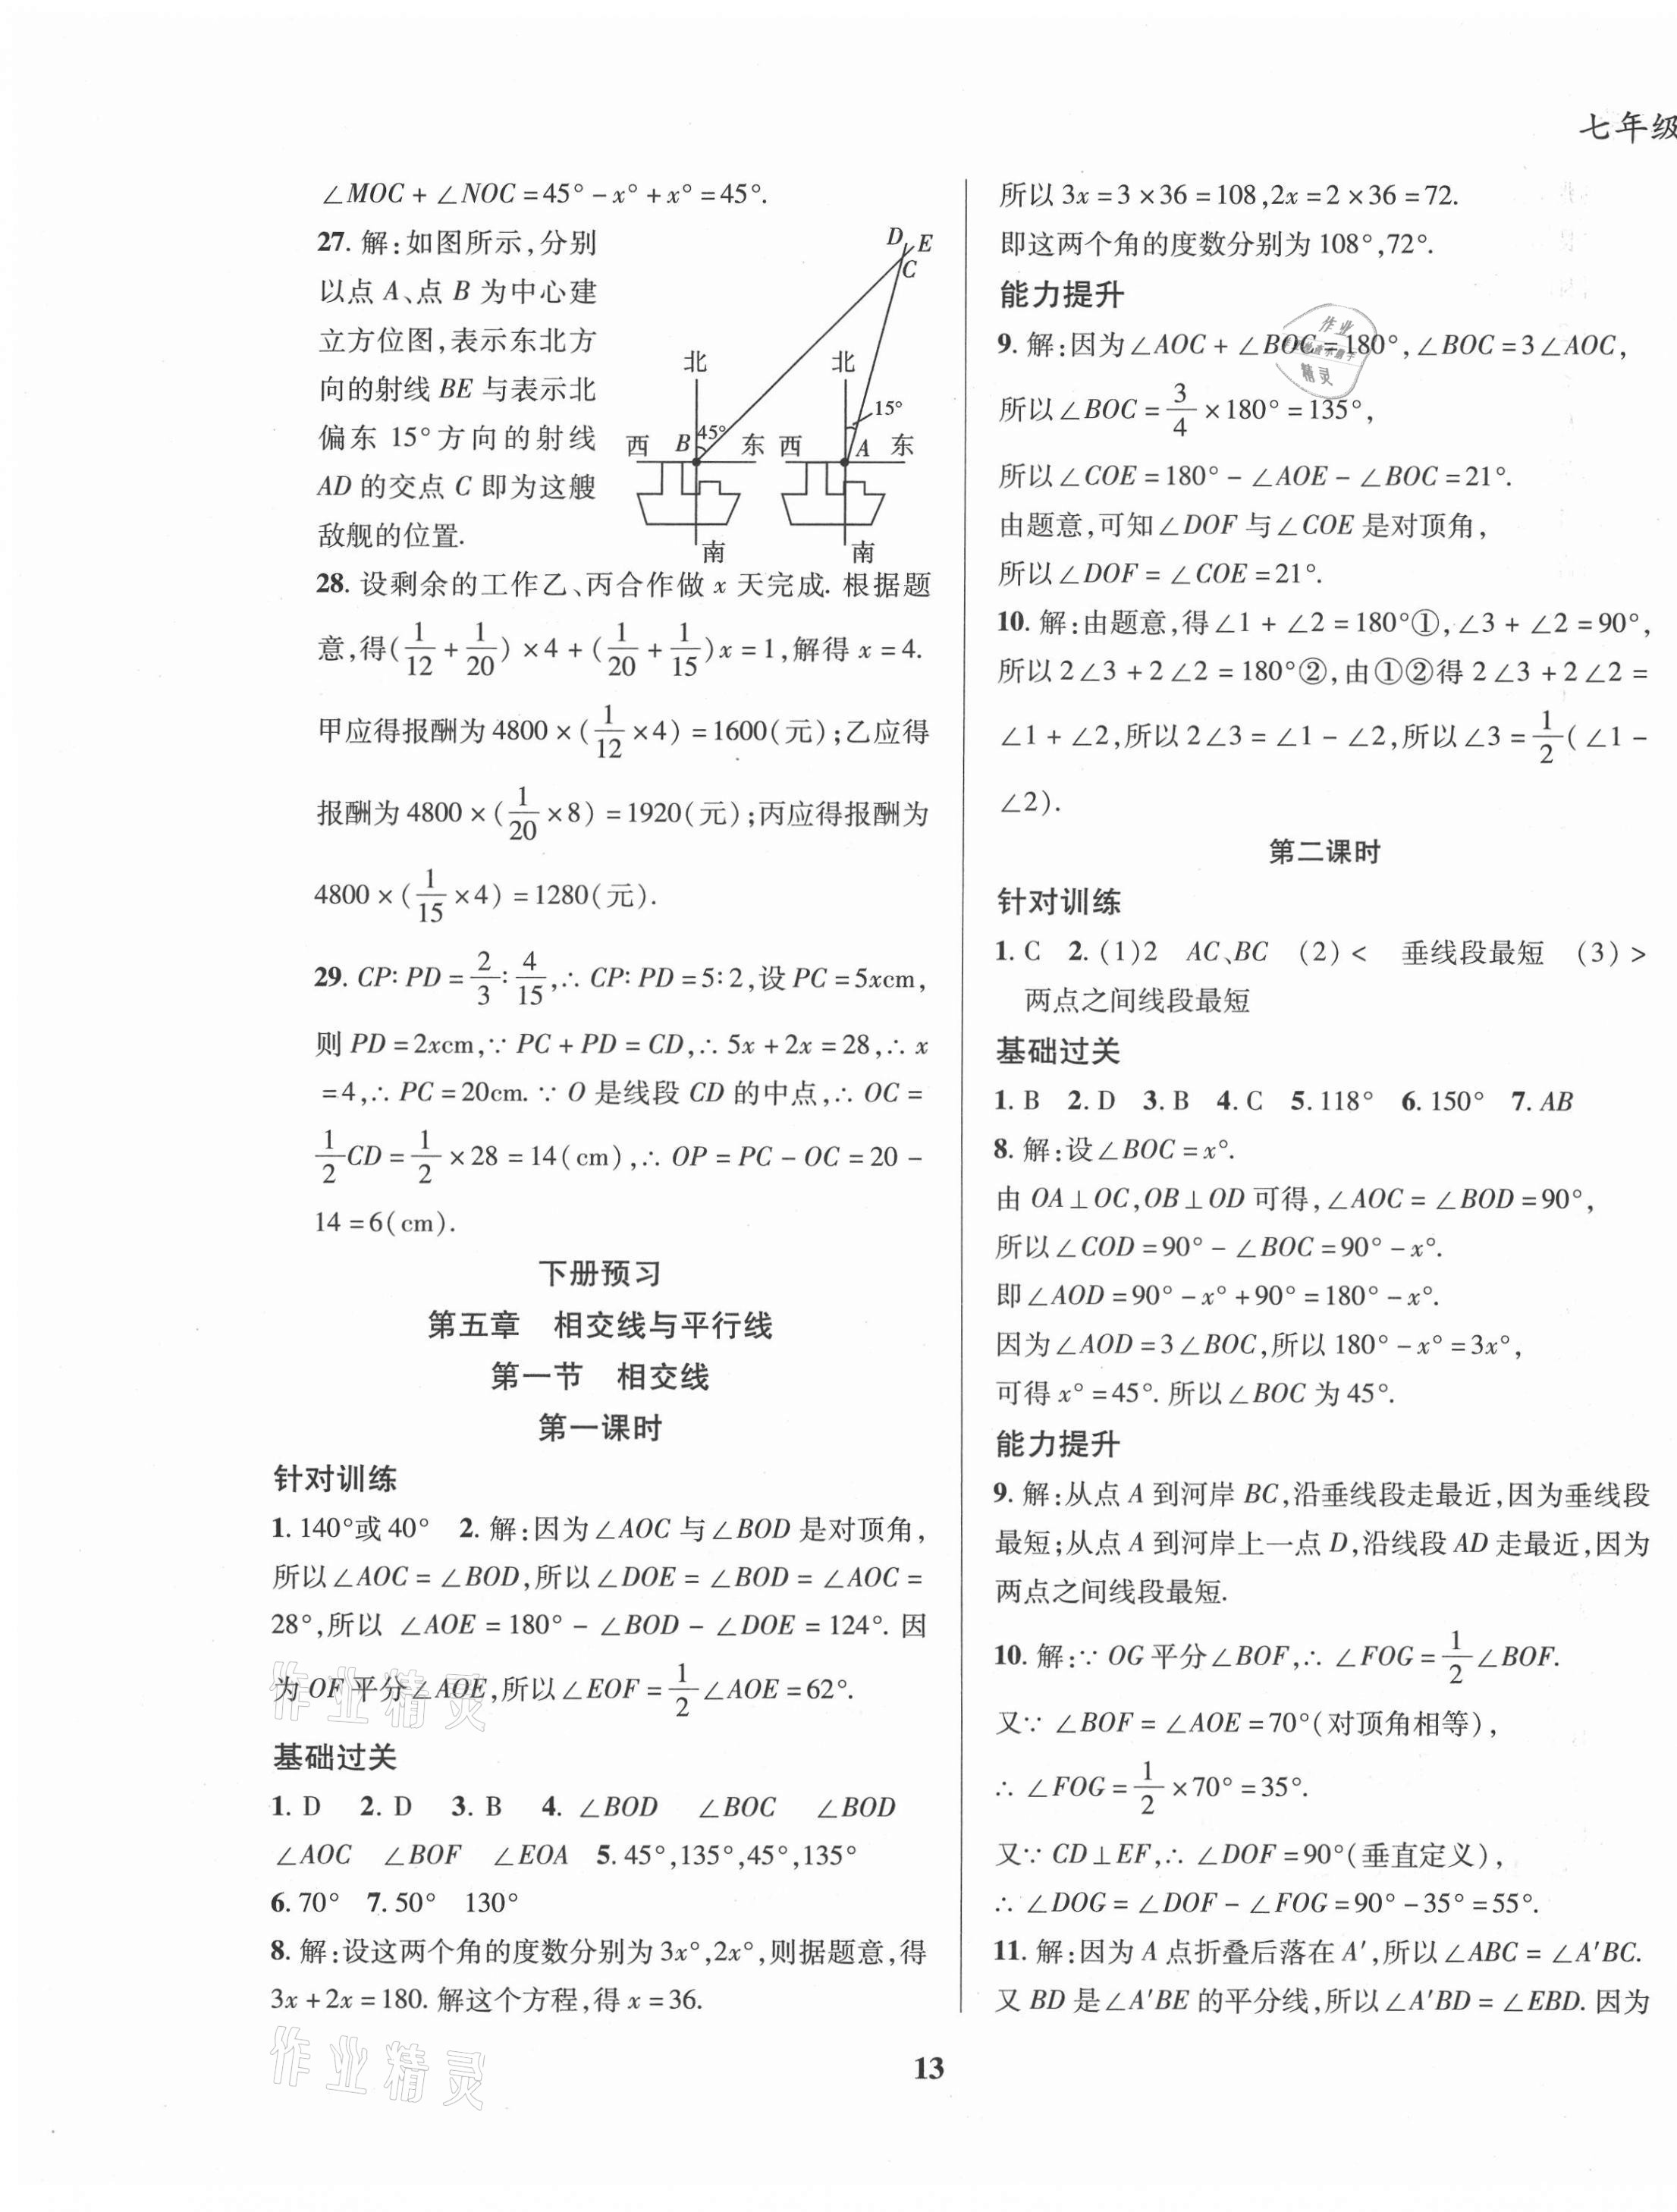 七年级
∠MOC + ∠NOC = 45° - x° + x° = 45°.
27. 解:如图所示,分别
以点 A、点 B 为中心建
立方位图,表示东北方
向的射线 BE 与表示北
偏东 15°方向的射线
AD 的交点 C 即为这艘
敌舰的位置.
D E
C
北 北
45° 15°
西 B 东 西 A 东
南 南
28. 设剩余的工作乙、丙合作做 x 天完成. 根据题
意,得(1/12 + 1/20) × 4 + (1/20 + 1/15)x = 1,解得 x = 4.
甲应得报酬为 4800 × (1/12 × 4) = 1600(元);乙应得
报酬为 4800 × (1/20 × 8) = 1920(元);丙应得报酬为
4800 × (1/15 × 4) = 1280(元).
29. CP∶PD = 2/3∶4/15,∴ CP∶PD = 5∶2,设 PC = 5xcm,
则 PD = 2xcm,∵ PC + PD = CD,∴ 5x + 2x = 28,∴ x
= 4,∴ PC = 20cm. ∵ O 是线段 CD 的中点,∴ OC =
1/2CD = 1/2 × 28 = 14(cm),∴ OP = PC - OC = 20 -
14 = 6(cm).
下册预习
第五章 相交线与平行线
第一节 相交线
第一课时
针对训练
1. 140°或 40° 2. 解:因为∠AOC 与∠BOD 是对顶角,
所以∠AOC = ∠BOD,所以∠DOE = ∠BOD = ∠AOC =
28°,所以 ∠AOE = 180° - ∠BOD - ∠DOE = 124°. 因
为 OF 平分∠AOE,所以∠EOF = 1/2∠AOE = 62°.
基础过关
1. D 2. D 3. B 4. ∠BOD ∠BOC ∠BOD
∠AOC ∠BOF ∠EOA 5. 45°,135°,45°,135°
6. 70° 7. 50° 130°
8. 解:设这两个角的度数分别为 3x°,2x°,则据题意,得
3x + 2x = 180. 解这个方程,得 x = 36.
所以 3x = 3 × 36 = 108,2x = 2 × 36 = 72.
即这两个角的度数分别为 108°,72°.
能力提升
9. 解:因为∠AOC + ∠BOC = 180°,∠BOC = 3∠AOC,
所以∠BOC = 3/4 × 180° = 135°,
所以∠COE = 180° - ∠AOE - ∠BOC = 21°.
由题意,可知∠DOF 与∠COE 是对顶角,
所以∠DOF = ∠COE = 21°.
10. 解:由题意,得∠1 + ∠2 = 180°①,∠3 + ∠2 = 90°,
所以 2∠3 + 2∠2 = 180°②,由①②得 2∠3 + 2∠2 =
∠1 + ∠2,所以 2∠3 = ∠1 - ∠2,所以∠3 = 1/2(∠1 -
∠2).
第二课时
针对训练
1. C 2. (1)2 AC、BC (2) < 垂线段最短 (3) >
两点之间线段最短
基础过关
1. B 2. D 3. B 4. C 5. 118° 6. 150° 7. AB
8. 解:设∠BOC = x°.
由 OA⊥OC,OB⊥OD 可得,∠AOC = ∠BOD = 90°,
所以∠COD = 90° - ∠BOC = 90° - x°.
即∠AOD = 90° - x° + 90° = 180° - x°.
因为∠AOD = 3∠BOC,所以 180° - x° = 3x°,
可得 x° = 45°. 所以∠BOC 为 45°.
能力提升
9. 解:从点 A 到河岸 BC,沿垂线段走最近,因为垂线段
最短;从点 A 到河岸上一点 D,沿线段 AD 走最近,因为
两点之间线段最短.
10. 解:∵ OG 平分∠BOF,∴ ∠FOG = 1/2∠BOF.
又∵ ∠BOF = ∠AOE = 70°(对顶角相等),
∴ ∠FOG = 1/2 × 70° = 35°.
又∵ CD⊥EF,∴ ∠DOF = 90°(垂直定义),
∴ ∠DOG = ∠DOF - ∠FOG = 90° - 35° = 55°.
11. 解:因为 A 点折叠后落在 A′,所以∠ABC = ∠A′BC.
又 BD 是∠A′BE 的平分线,所以∠A′BD = ∠EBD. 因为
13
作业
精灵
作业精灵
作业精灵